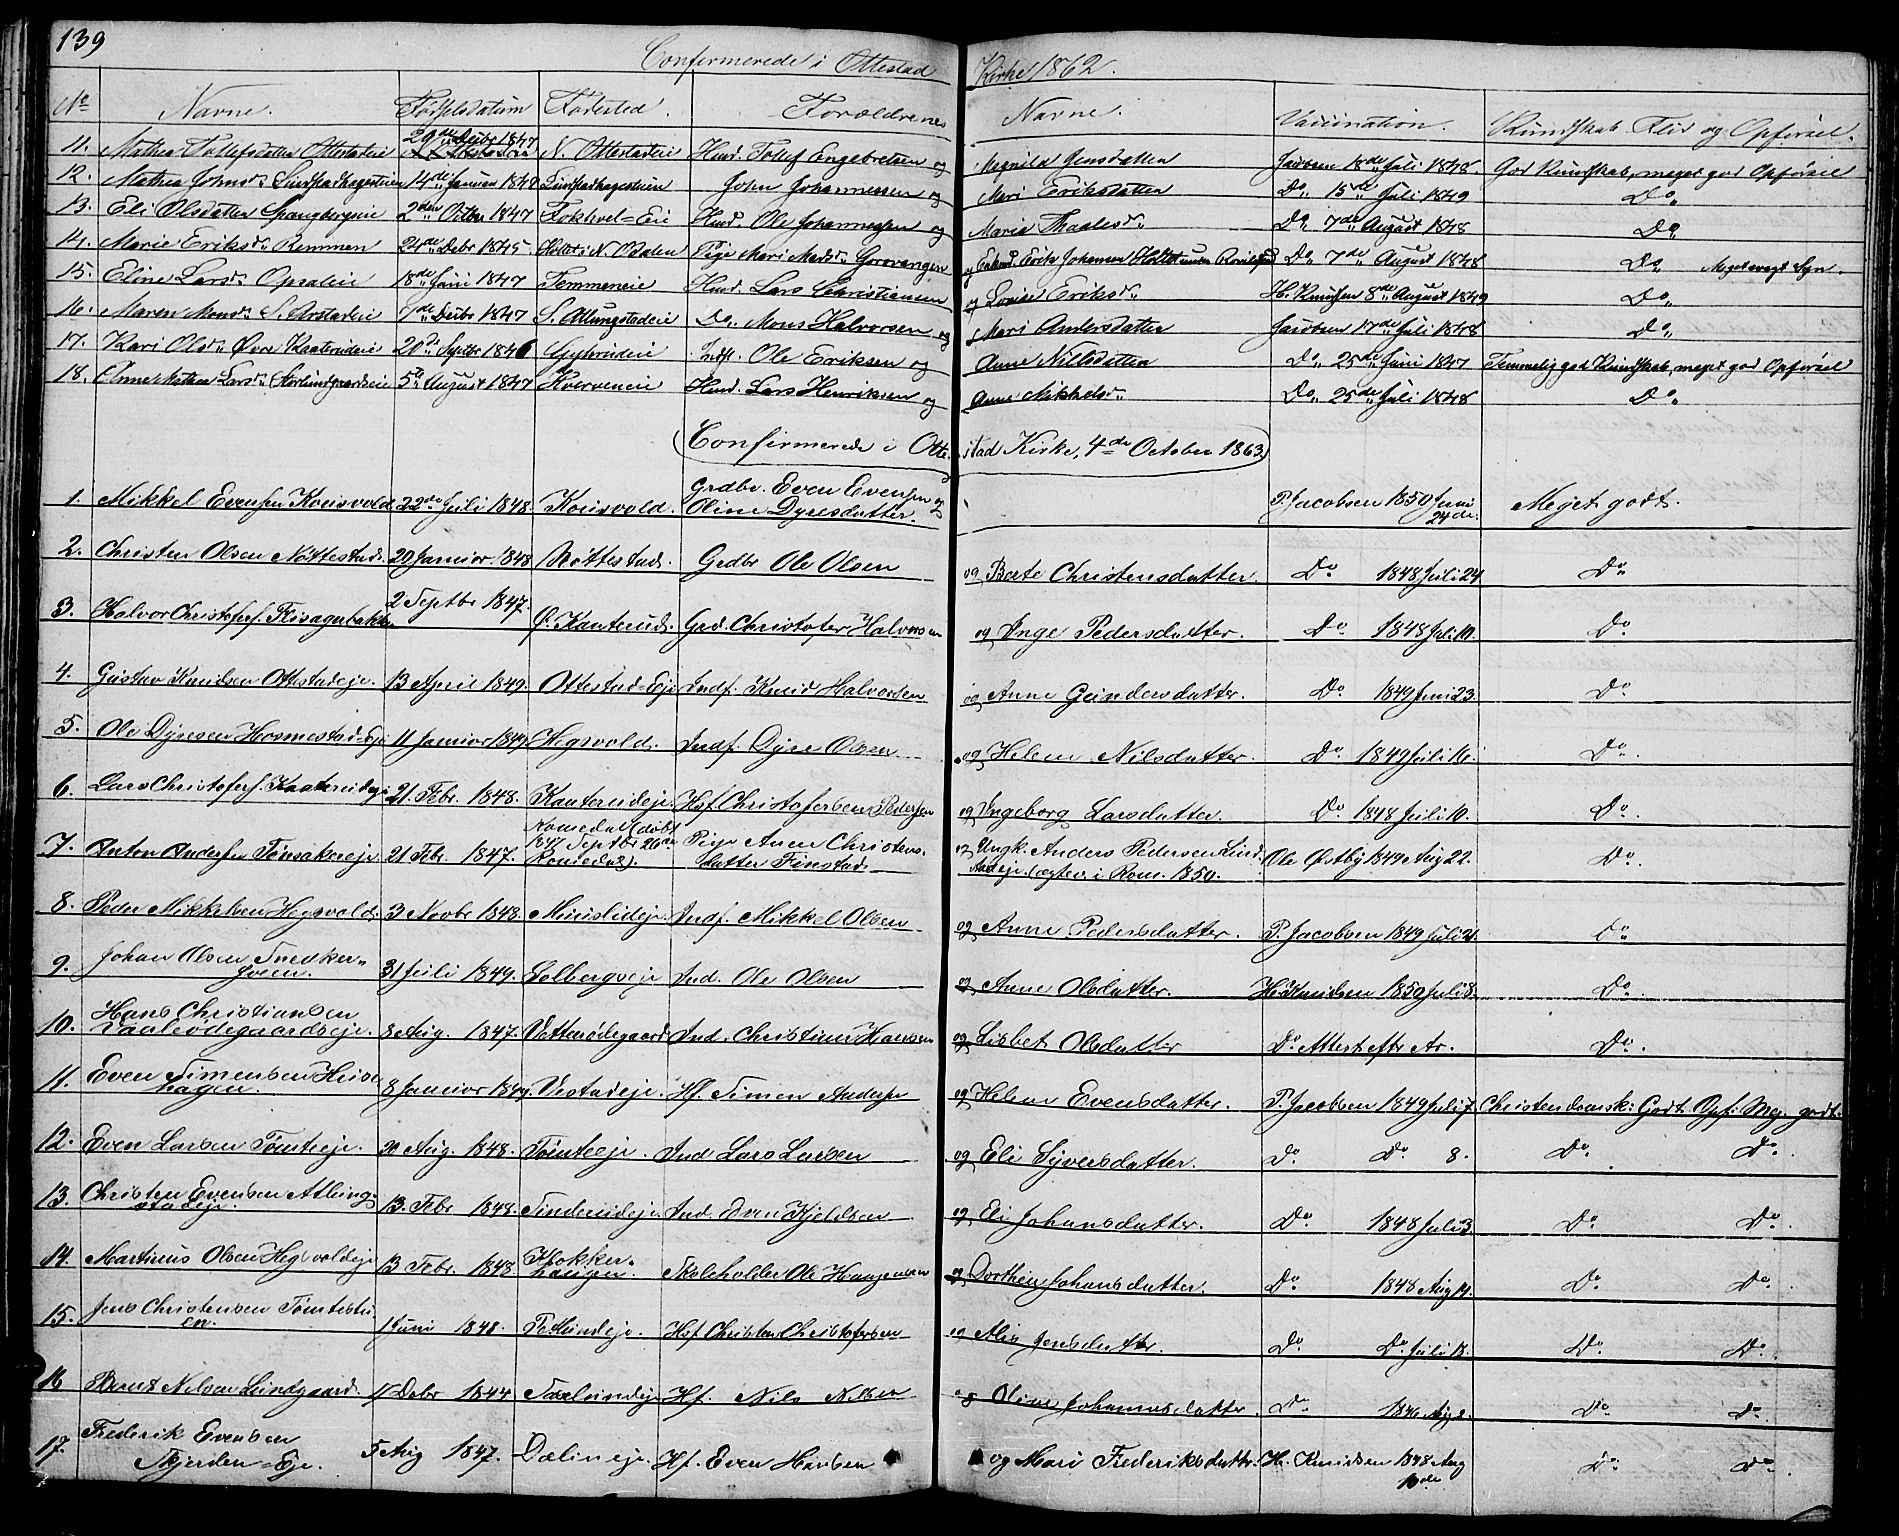 139
Confirmerede i Ottestad Kirke 1862.
No Navne. Fødselsdatum Fødested. Forældrenes Navne. Vaccination. Kundskab, Flid og Opførsel.
11. Mathea Tollefsdatter Ottestadeie 29de Decbr 1847 N. Ottestadeie Husd. Tollef Engebretsen og Magnild Jensdatter Jacobsen 18de Juli 1848. God Kundskab, meget god Opførsel
12. Mathea Johnsdr. 14de Januar 1848 John Johannessen og Mari Eriksdatter Do. 15de Juli 1849 Do.
13. Eli Olsdatter Spangbergeie 2den Octbr 1847 Fokhol-Eie Husd. Ole Johannessen og Maria Do. 7de August 1848 Do.
14. Marie Eriksdr. Remmen 24de Debr 1845 N. Odalen Pige Mari Madsdr. og Erik Johansen Do. 7de August 1848 Do. Meget svagt Syn.
15. Eline Larsdr. Opsaleie 18de Juni 1847 Temmeneie Husd. Lars Christiansen og Lovise Eriksdr. H. Knudsen 8de August 1849 Do.
16. Maren Monsdr. S. Arstadeie 7de Decbr 1847 S. Allungstadeie Do. Mons Halvorsen og Mari Andersdatter Jacobsen 17de Juli 1848 Do.
17. Kari Olsdr. Øvre Kaaterudeie 20de Septbr 1846 Indst. Ole Eriksen og Anne Nillsdatter Do. 25de Juni 1847 Temmelig god Kundskab, meget god Opførsel
18. Anne Mathea Larsdr. 5te August 1847 Kverveneie Husd. Lars Henriksen og Anne Mikkelsdr. Do. 25de Juli 1848 Do.
Confirmerede i Ottestad Kirke, 4de October 1863.
1. Mikkel Evensen Kousvold 22de Juli 1848. Kousvold. Grdbr. Even Evensen og Oline Dyresdatter. P. Jacobsen 1850 Juni 24de. Meget godt.
2. Christen Olsen Nøttestad. 20 Januar 1848 Nøttestad. Grdbr Ole Olsen og Berte Christensdatter. Do 1848 Juli 24 Do
3. Halvor Christofers. Flisagerbakken 2 Septbr 1847. Ø. Kaaterud. Grd. Christofer Halvorsen og Inge Pedersdatter. Do 1848 Juli 10. Do.
4. Gustav Knudsen Ottestadeje. 13 April 1849. Ottestad-Eje Indf. Knud Halvorsen og Anne Gundersdatter. Do. 1849 Juni 23. Do
5. Ole Dyresen Hosmestad-Eje 11 Januar 1849 Hegsvold. Indf. Dyre Olsen og Helene Nilsdatter. Do 1849 Juli 16. Do.
6. Lars Christofers. Kaaterudeje 21. Febr. 1848. Kaaterudeje. Hsf Christofersen Pedersen og Ingeborg Larsdatter. Do 1848 Juli 10. Do.
7. Anton Andersen Tønsakereje 21 Febr. 1847. Romedal (døbt 1847 Septbr 26de Romedal). Pige Anne Christensdatter Finstad og Ungk. Anders Pedersen Lindstadeje. (ægtev. i Rom. 1850. Ole Østby 1849 Aug 22. Do.
8. Peder Mikkelsen Hegsvold 3 Novbr 1848. Indf. Mikkel Olsen og Anne Pedersdatter. P. Jacobsen 1849 Juli 21. Do
9. Johan Olsen 31 Juli 1849. Solbergseje Ind. Ole Olsen og Anne Olsdatter. H. Knudsen 1850 Juli 8. Do.
10. Hans Christiansen Vaaleødegaardseje. 8 Aug. 1847. Ind. Christian Hansen og Lisbet Olsdatter Do Attest eftr Ar. Do.
11. Even Simensen 8 Januar 1849 Vestadeje. Hf. Simen Andersen og Helene Evensdatter. P. Jacobsen 1849 Juli 7. Christendomsk: Godt. Opf: Meg. godt.
12. Even Larsen Tomteeje. 20 Aug. 1848. Tomteeje. Ind Lars Larsen og Eli Syversdatter. Do. Do. 8. Do. Do.
13. Christen Evensen Atlungstadeje. 13. Febr 1848. Ind. Even Kjeldsen og Eli Johansdatter. Do. 1848 Juli 3. Do. Do.
14. Martinus Olsen Hegsvoldeje 13 Febr. 1848. Klokkerhaugen. Skoleholder Ole Haagensen og Dorthea Johansdatter. Do. 1848 Aug 14. Do. Do.
15. Jens Christensen Tomtestuen. 1 Juni 1848. Hsf Christen Christofersen og Alis Jensdatter. Do. Do. Juli 18. Do. Do.
16 Bernt Nilsen Lundgaard. 17 Debr 1844 Hf. Nils Nilsen og Oline Johannesdatter. Do. 1846 Aug 2. Do. Do.
17. Frederik Evensen Skjerden-Eje. 5 Aug 1847. Dælineje. Hf. Even Hansen og Mari Frederiksdatter. H. Knudsen 1848 Aug 10de Do Do.